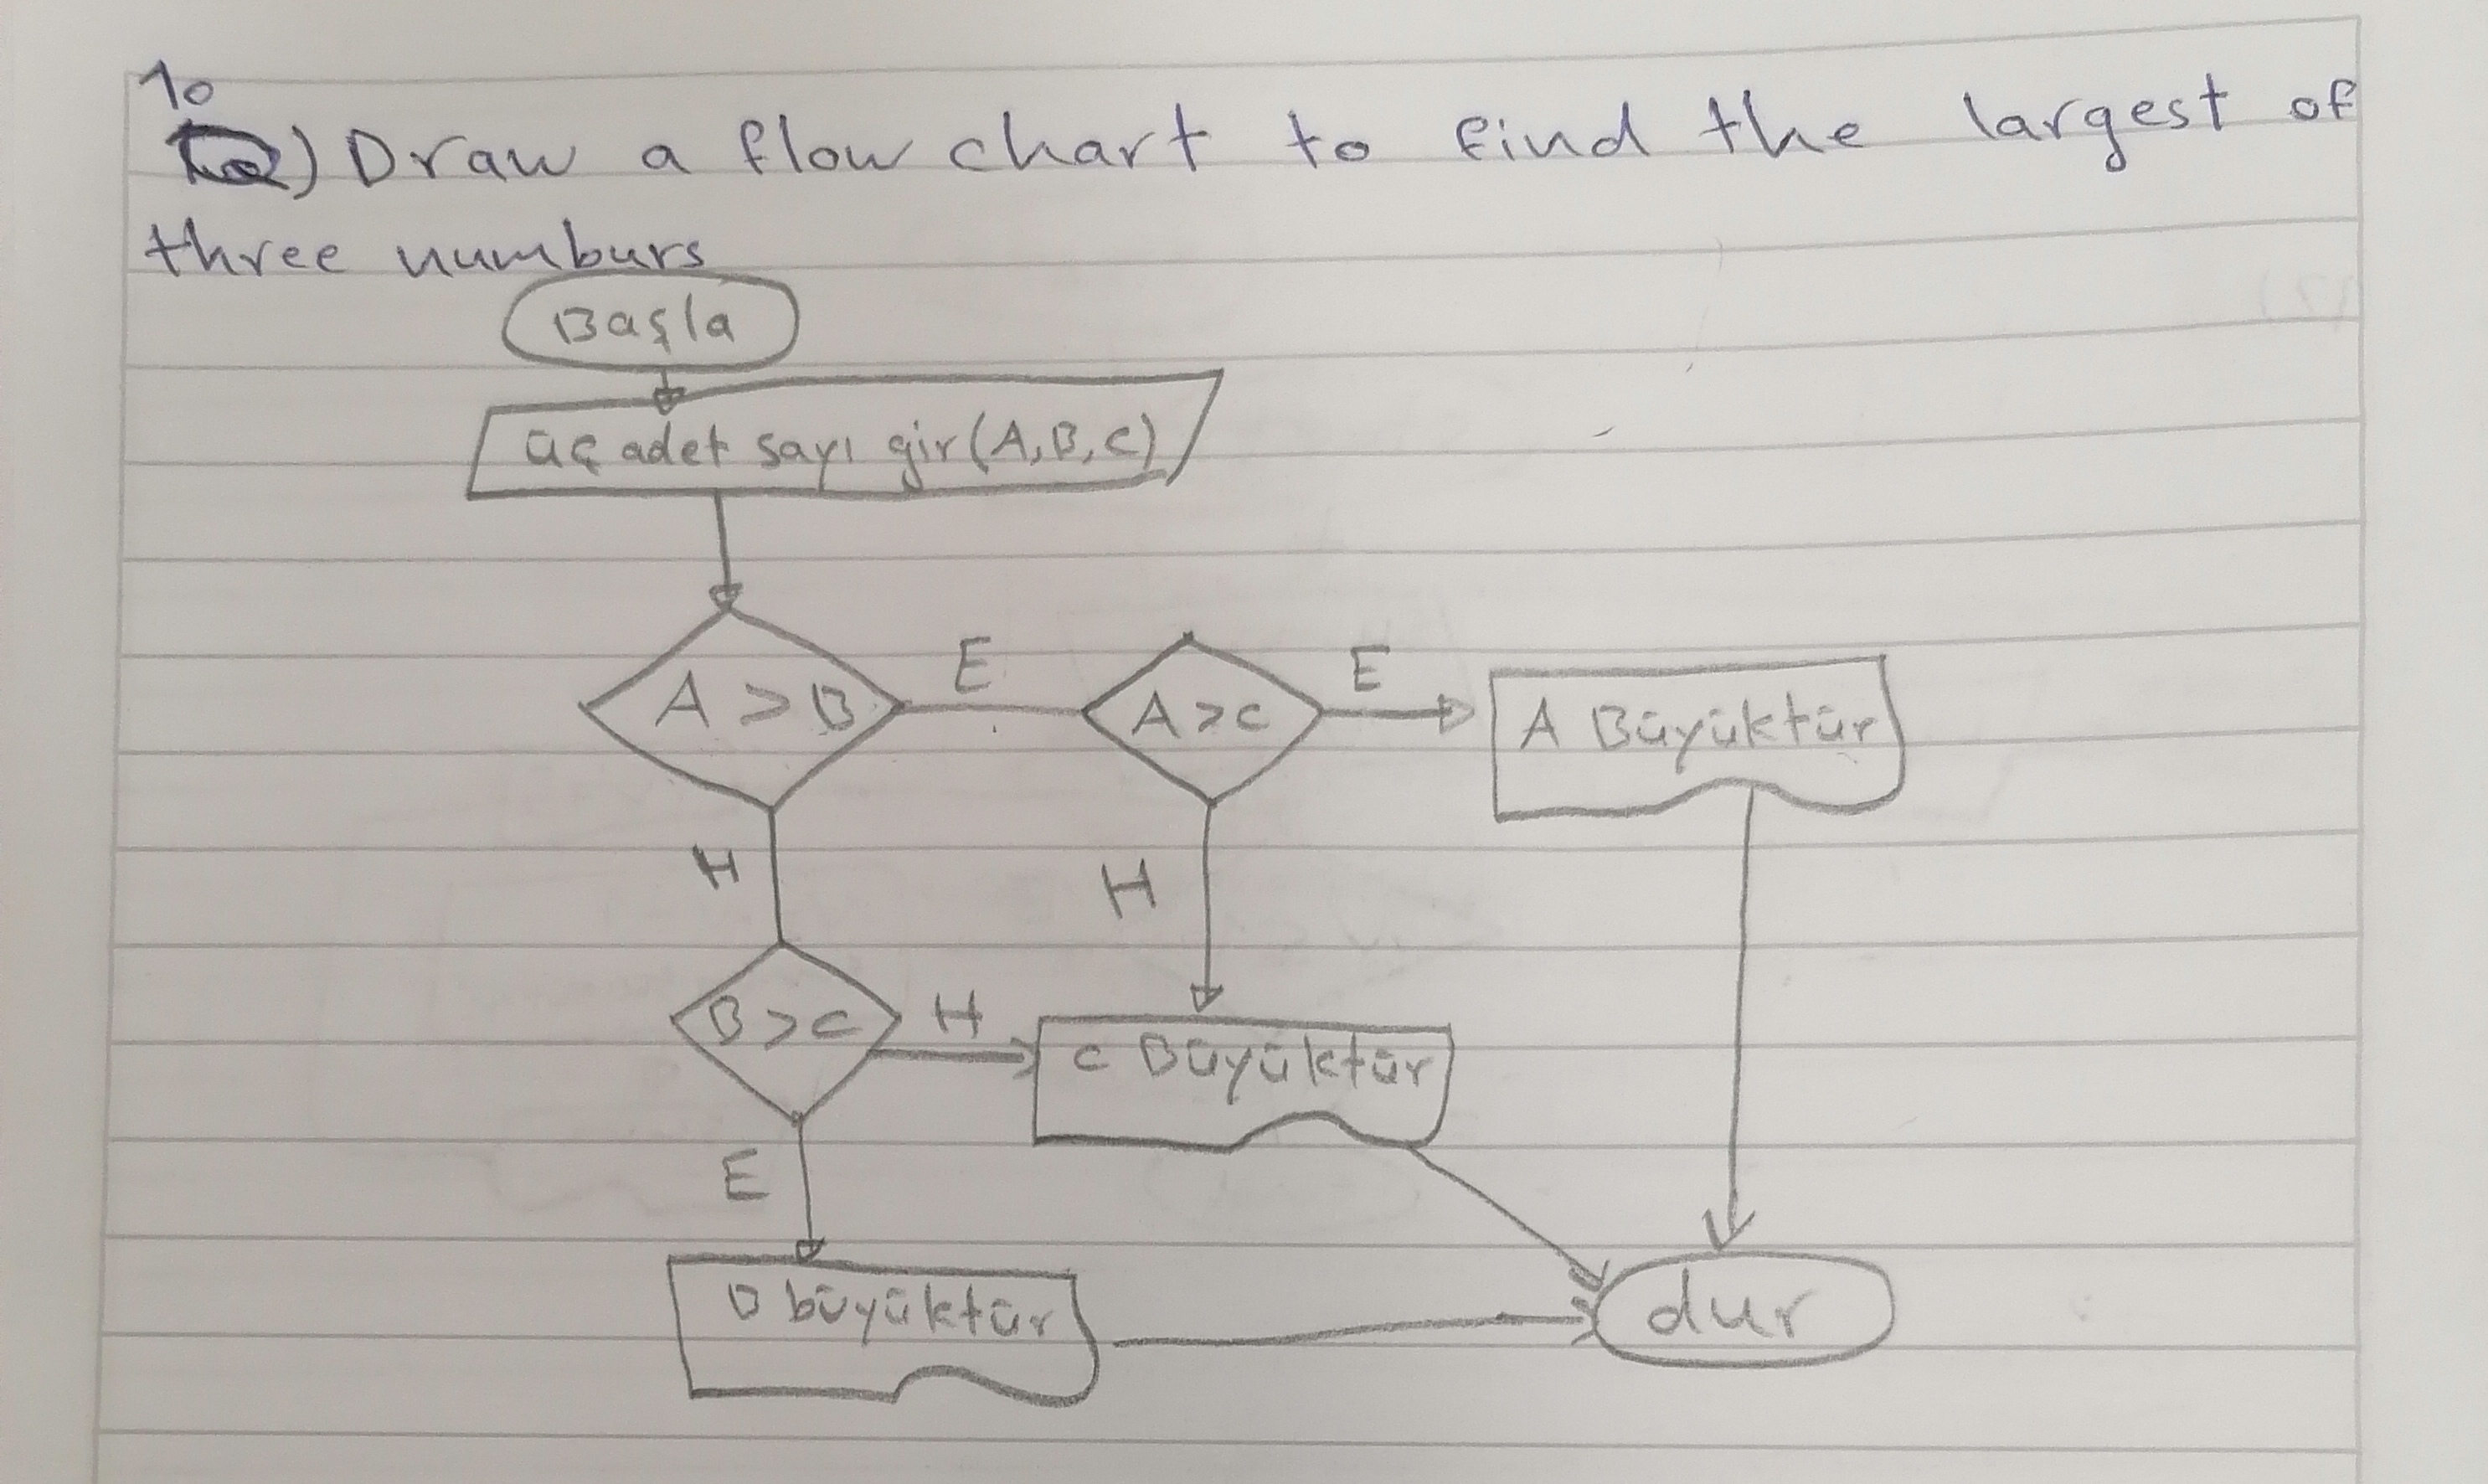 10
) Draw a flow chart to find the largest of
three numburs
Başla
üç adet sayı gir (A, B, C)
A > B
E
A > C
E
A Büyüktür
H
H
B > C
H
C Büyüktür
E
B büyüktür
dur